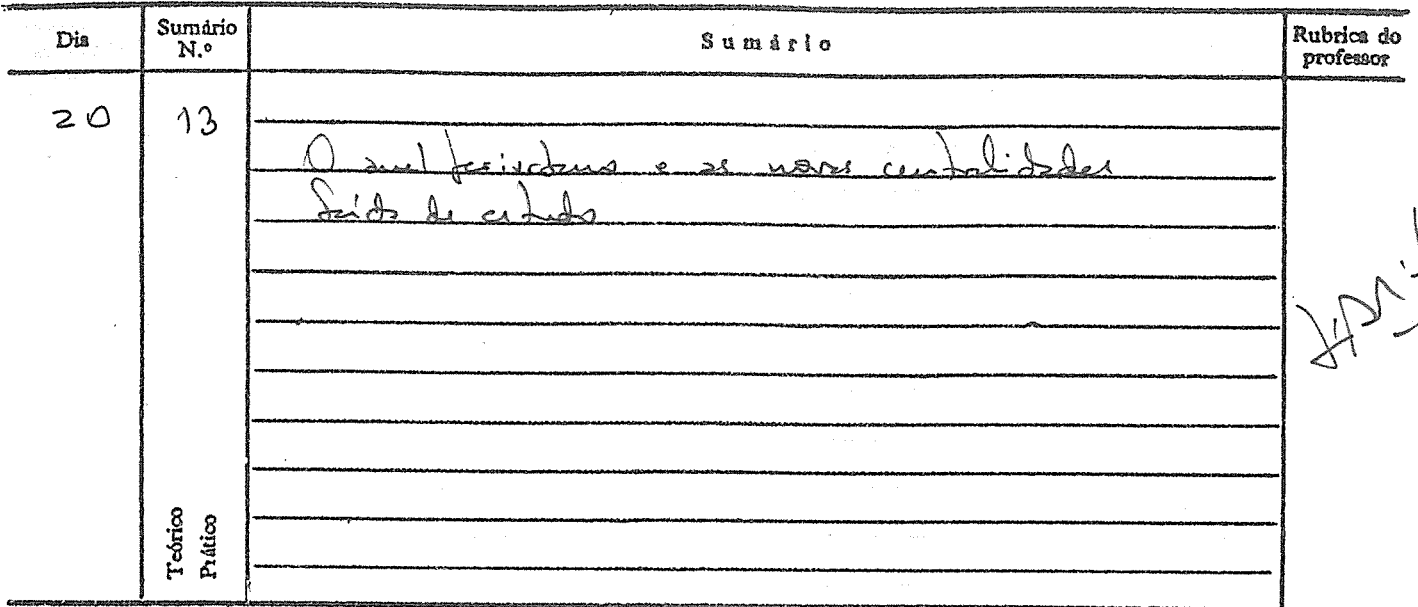 Dia Sumário N.º Sumário Rubrica do professor
20 13
O anel e as novas centralidades
de estudo
Teórico
Prático